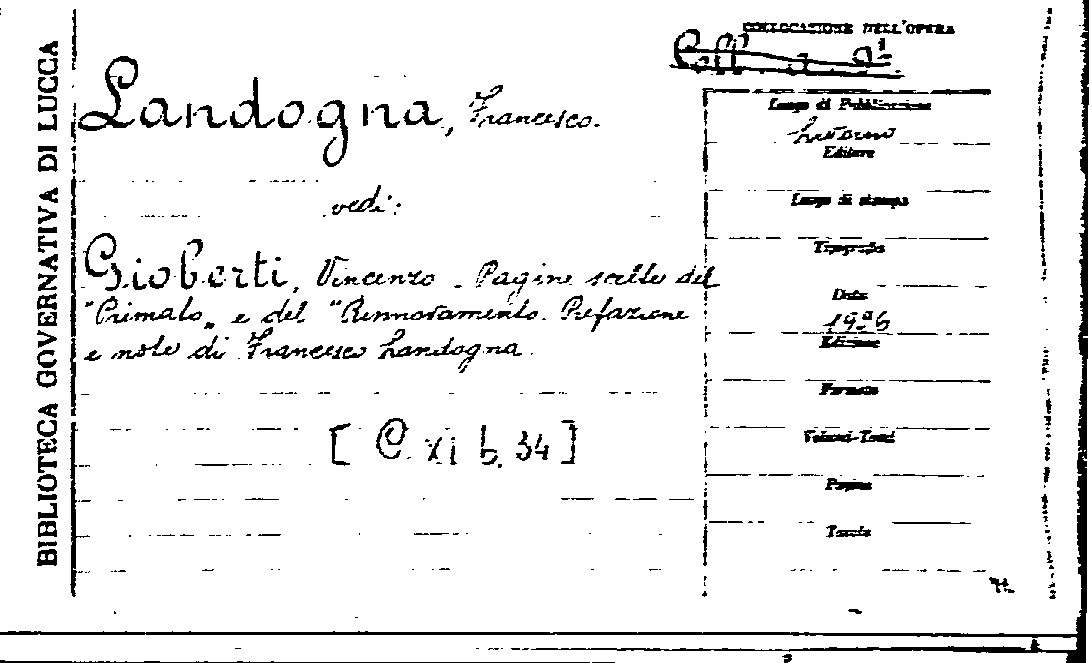 BIBLIOTECA GOVERNATIVA DI LUCCA
COLLOCAZIONE DELL'OPERA
Landogna, Francesco.
vedi:
Gioberti, Vincenzo - Pagine scelte del
"Primato" e del "Rinnovamento. Prefazione
e note di Francesco Landogna.
[ C. XI b. 34 ]
Luogo di Pubblicazione
Livorno
Editore
Luogo di stampa
Tipografia
Data
Edizione
Formato
Volumi-Tomi
Pagine
Tavole